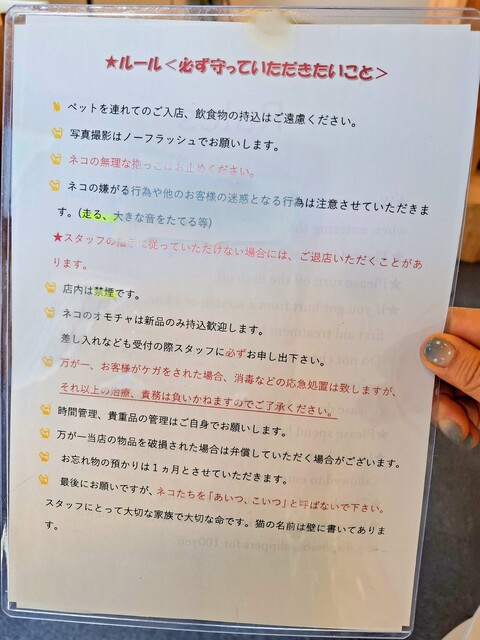 ★ルール＜必ず守っていただきたいこと＞
ペットを連れてのご入店、飲食物の持込はご遠慮ください。
写真撮影はノーフラッシュでお願いします。
ネコの無理な抱っこはお止めください。
ネコの嫌がる行為や他のお客様の迷惑となる行為は注意させていただきま
す。(走る、大きな音をたてる等)
★スタッフの指示に従っていただけない場合には、ご退店いただくことがあ
ります。
店内は禁煙です。
ネコのオモチャは新品のみ持込歓迎します。
差し入れなども受付の際スタッフに必ずお申し出下さい。
万が一、お客様がケガをされた場合、消毒などの応急処置は致しますが、
それ以上の治療、責務は負いかねますのでご了承ください。
時間管理、貴重品の管理はご自身でお願いします。
万が一当店の物品を破損された場合は弁償していただく場合がございます。
お忘れ物の預かりは1ヵ月とさせていただきます。
最後にお願いですが、ネコたちを「あいつ、こいつ」と呼ばないで下さい。
スタッフにとって大切な家族で大切な命です。猫の名前は壁に書いてありま
す。